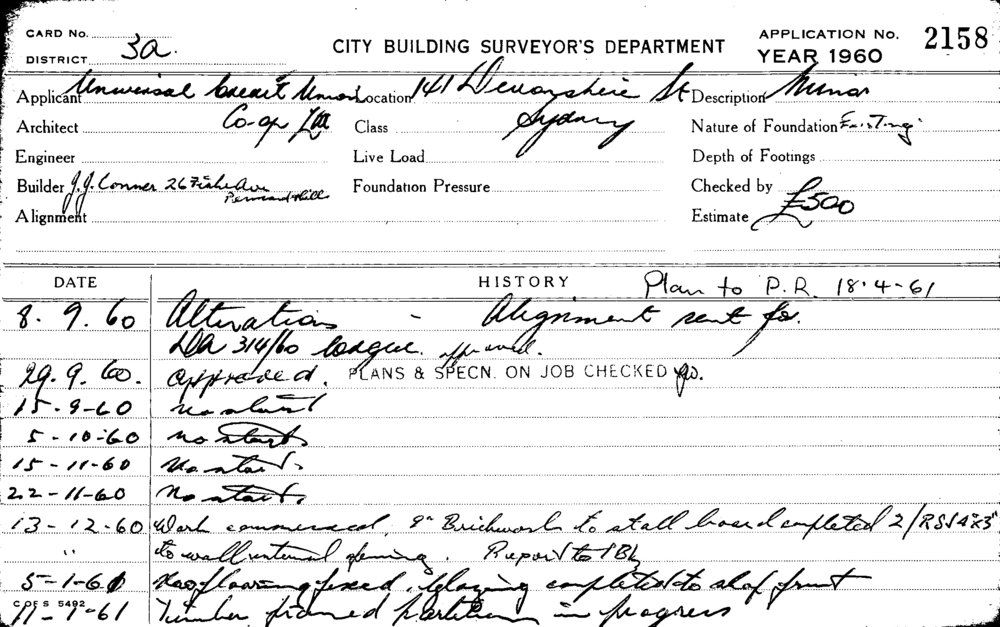 CARD No.
DISTRICT 3a.
CITY BUILDING SURVEYOR'S DEPARTMENT
APPLICATION No. 2158
YEAR 1960
Applicant Universal Credit Union Location 141 Devonshire St Description Minor
Architect Co-op Ltd Class Sydney Nature of Foundation Existing
Engineer Live Load Depth of Footings
Builder J.J. Conner 26 Ave Foundation Pressure Checked by
Pennant Hills
Alignment Estimate £500
DATE HISTORY Plan to P.R. 18.4-61
8. 9. 60 Alterations - Alignment sent for.
DA 314/60 League. approved.
29. 9. 60. approved. PLANS & SPECN. ON JOB CHECKED
15-9-60 no start
5-10-60 no start
15-11-60 No start.
22-11-60 No start.
13-12-60 Work commenced. 9" Brickwork to stall board completed 2/RSJ 4"x3"
" to wall internal opening. Report to
5-1-61 flooring fixed. glazing completed to shop front
C OF S 5492
11-1-61 Timber framed partition in progress